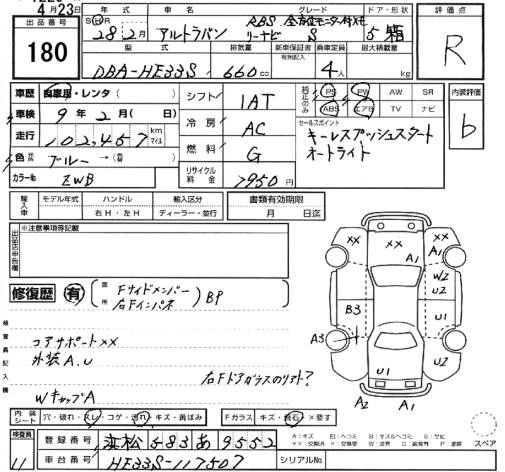 4月23日
出品番号
180
年式 車名 グレード ドア・形状
SⒽR 28 2月 アルトラパン
ABS 全方位モニター付メモリーナビ S
5 箱
型式 排気量 新車保証書 有無記入 乗車定員 最大積載量
DBA-HE33S 660cc 4人 kg
評価点
R
車歴 自家用・レンタ( )
車検 9年 2月( 日)
走行 102,457 km マイル
色 ブルー →(替 )
カラーNo ZWB
シフト 1AT
冷房 AC
燃料 G
リサイクル料金 7950円
純正のみ
PS PW AW SR
ABS エアB TV ナビ
セールスポイント
キーレスプッシュスタート
オートライト
内装評価
b
輸入車 モデル年式 ハンドル 輸入区分
右H・左H ディーラー・並行
書類有効期限
月 日迄
出品店申告欄
※注意事項等記載
修復歴 有 箇所 Fサイドメンバー
右Fインパネ
BP
検査員記入欄
コアサポート××
外装A.U
右Fドアガラスのソリット?
WキャップA
××
××
A1
A1
W2
U2
U2
B3
U2
A3
U1
U1
A2
A1
内装シート 穴・破れ・スレ・コゲ・汚れ・キズ・黄ばみ
Fガラス キズ・飛石・×要す
検査員
11
登録番号 浜松583あ9552
車台番号 HE33S-117507
シリアルNo
A:キズ U:ヘコミ B:キズ&ヘコミ S:サビ
スペア